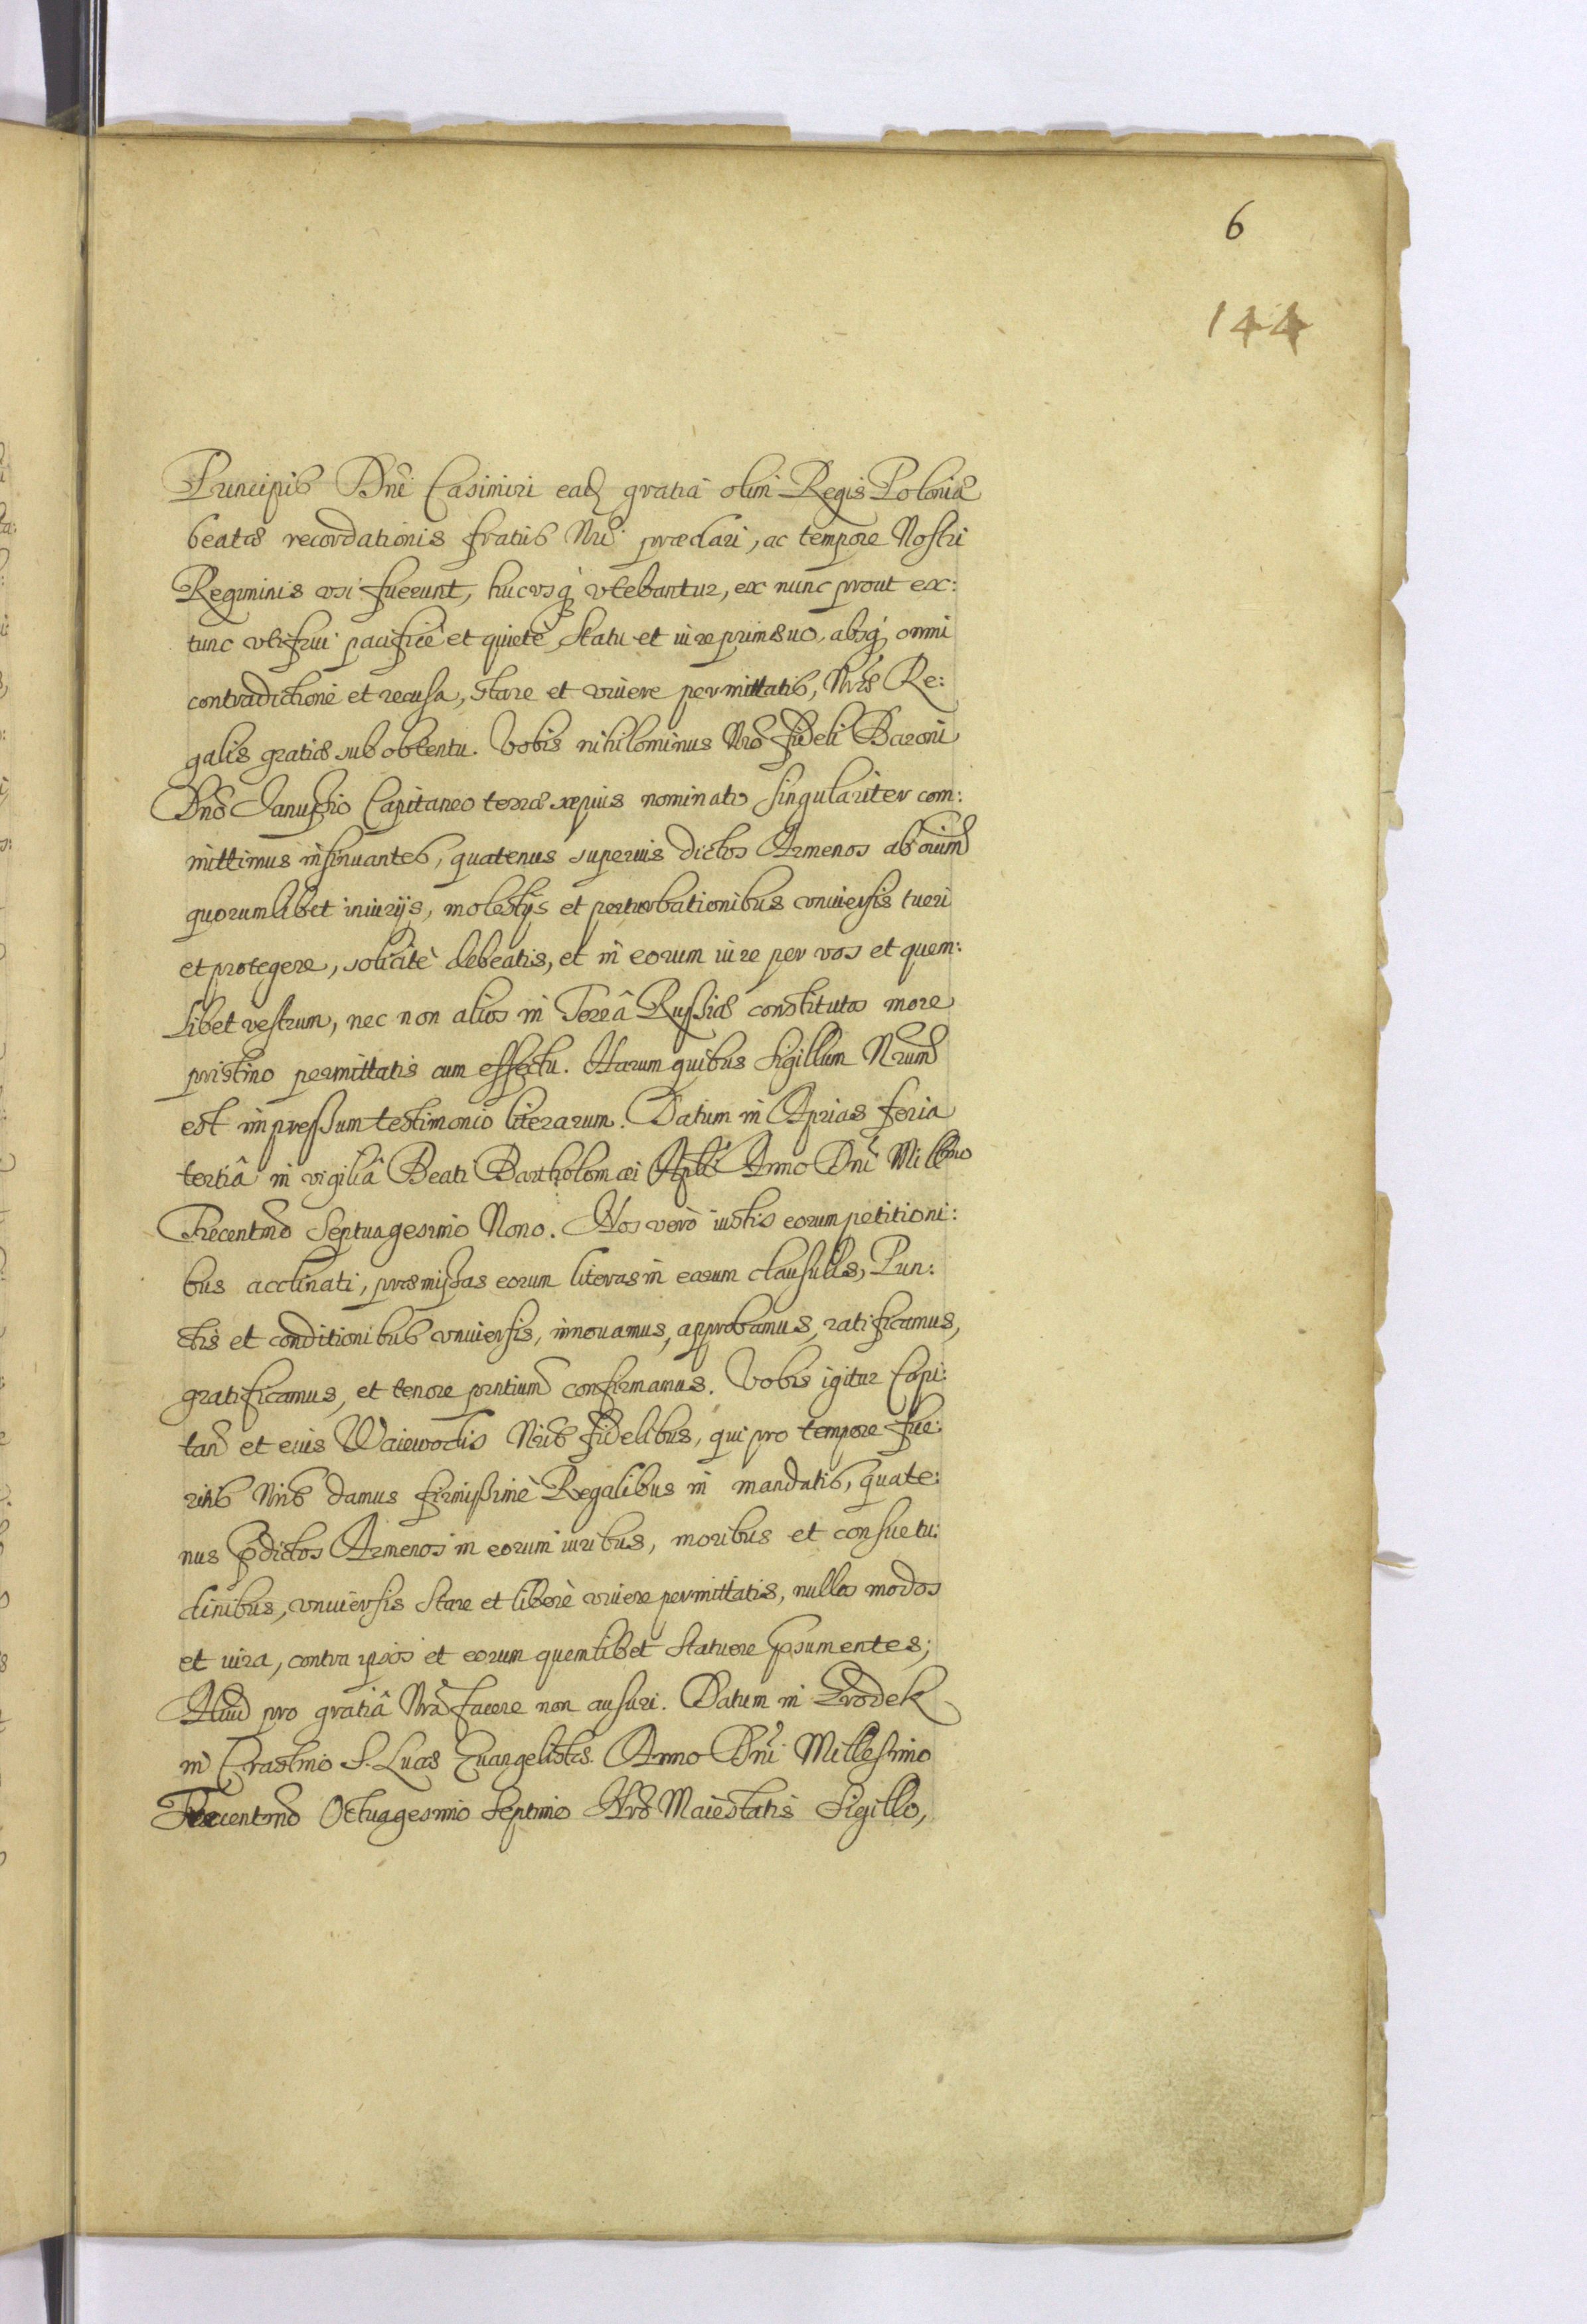 6
144
Principis Dni Casimiri eadẽ gratiâ olim Regis Poloniæ
beatæ recordationis fratris Nri præclari, ac tempore Nostri
Regiminis vsi fuerunt, hucvsq̃ vtebantur, ex nunc prout ex:
tunc vti frui pacificè et quietè statu et iure primæuo, absq̃ omni
contradictione et recusa, stare et viuere permittatis, Nræ Re:
galis gratiæ sub obtentu. Vobis nihilominus Nro fideli Baroni
Dno Janussio Capitaneo terræ sæpius nominatæ singulariter com:
mittimus insinuantes, quatenus superius dictos Armenos ab oium
quorumlibet iniurijs, molestijs et perturbationibus vniuersis tueri
et protegere, solicitè debeatis, et in eorum iure per vos et quem:
libet vestrum, nec non alios in Terrâ Russiæ constitutos more
pristino permittatis cum effectu. Harum quibus Sigillum Nrum
est impressum testimonio literarum. Datum in Aprias feria
tertiâ in vigiliâ Beati Bartholomæi Apli Anno Dni Millmo
Trecentmo Septuagesimo Nono. Nos verò iustis eorum petitioni:
bus acclinati, præmissas eorum literas in earum clausulis, Pun:
ctis et conditionibus vniuersis, innouamus, approbamus, ratificamus,
gratificamus, et tenore prntium confirmamus. Vobis igitur Capi:
tan et eius Waiewodis Nris fidelibus, qui pro tempore fue:
ritis Nris damus firmissimè Regalibus in mandatis, quate:
nus p̃dictos Armenos in eorum iuribus, moribus et consuetu:
dinibus, vniuersis stare et liberè viuere permittatis, nullos modos
et iura, contra ipsos et eorum quemlibet statuere p̃sumentes;
Aliud pro gratiâ Nrâ facere non ausuri. Datum in Grodek
in Crastino S. Lucæ Euangelistæ. Anno Dni Millesimo
Trecentmo Octuagesimo Septimo Nræ Maiestatis Sigillo,